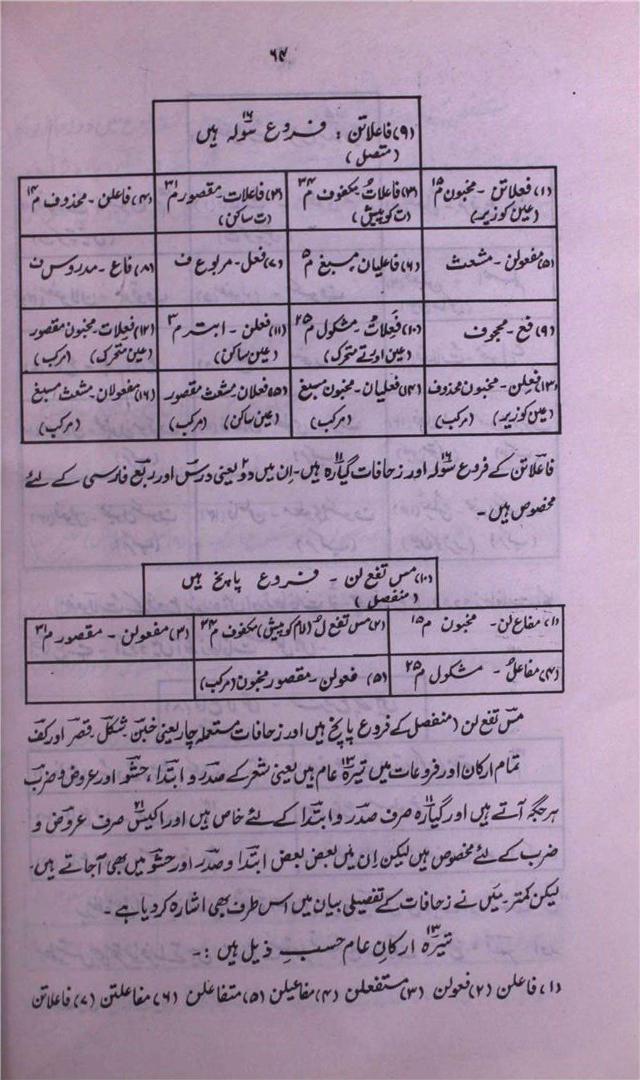 ۶۴
(۹) فاعلاتن : فروع سولہ ۱۶ ہیں
(متصل)
(۱) فعلاتن - مخبون م ۱۵ (۲) فاعلاتُ - مکفوف م ۳۴ (۳) فاعلات - مقصور م ۳۱ (۴) فاعلن - محذوف م ۱۴
(عین کو زیر) (ت کو پیش) (ت ساکن)
(۵) مفعولن - مشعث (۶) فاعلیان مسبغ م ۵ (۷) فعل - مربوع ف (۸) فاع - مدروس ف
(۹) فع - مجحوف (۱۰) فَعِلاتُ - مشکول م ۲۵ (۱۱) فعلن - ابتر م ۳ (۱۲) فعلات - مخبون مقصور
(عین اور تے متحرک) (عین ساکن) (عین متحرک) (مرکب)
(۱۳) فعِلن - مخبون محذوف (۱۴) فعلیان - مخبون مسبغ (۱۵) فعلان مشعث مقصور (۱۶) مفعولان - مشعث مسبغ
(عین کو زیر) (مرکب) (مرکب) (عین ساکن) (مرکب) (مرکب)
فاعلاتن کے فروع سولہ ۱۶ اور زحافات گیارہ ۱۱ ہیں۔ اِن میں دو ۲ یعنی درس اور ربع فارسی کے لئے
مخصوص ہیں ۔
(۱۰) مس تفع لن - فروع پانچ ہیں
(منفصل)
(۱) مفاعلن - مخبون م ۱۵ (۲) مس تفع لُ (لام کو پیش) مکفوف م ۳۴ (۳) مفعولن - مقصور م ۳۱
(۴) مفاعلُ - مشکول م ۲۵ (۵) فعولن - مقصور مخبون (مرکب)
مس تفع لن (منفصل کے فروع پانچ ہیں اور زحافات مستعملہ چار یعنی خبن، شکل، قصر اور کف
تمام ارکان اور فروعات میں تیرہ ۱۳ عام ہیں یعنی شعر کے صدر و ابتدا، حشو اور عروض و ضرب
ہر جگہ آتے ہیں اور گیارہ ۱۱ صرف صدر و ابتدا کے لئے خاص ہیں اور اکیس ۲۱ صرف عروض و
ضرب کے لئے مخصوص ہیں لیکن اِن میں بعض بعض ابتدا و صدر اور حشو میں بھی آجاتے ہیں۔
لیکن کمتر۔ میں نے زحافات کے تفصیلی بیان میں اس طرف بھی اشارہ کر دیا ہے ۔
تیرہ ۱۳ ارکانِ عام حسبِ ذیل ہیں :۔
(۱) فاعلن (۲) فعولن (۳) مستفعلن (۴) مفاعیلن (۵) متفاعلن (۶) مفاعلتن (۷) فاعلاتن